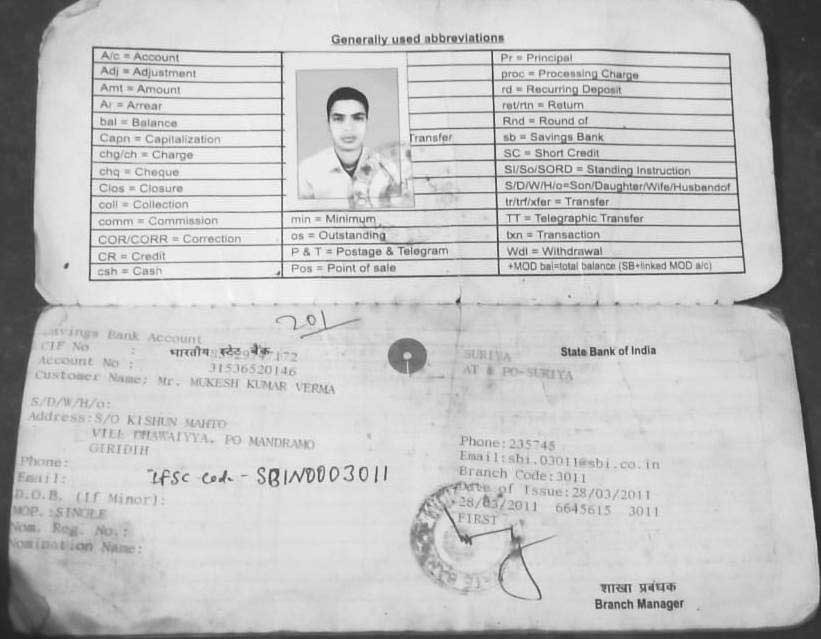 Generally used abbreviations
A/c = Account
Adj = Adjustment
Amt = Amount
Ar = Arrear
bal = Balance
Capn = Capitalization
chg/ch = Charge
chq = Cheque
Clos = Closure
coll = Collection
comm = Commission
COR/CORR = Correction
CR = Credit
csh = Cash
Transfer
min = Minimum
os = Outstanding
P & T = Postage & Telegram
Pos = Point of sale
Pr = Principal
proc = Processing Charge
rd = Recurring Deposit
ret/rtn = Return
Rnd = Round of
sb = Savings Bank
SC = Short Credit
SI/So/SORD = Standing Instruction
S/D/W/H/o=Son/Daughter/Wife/Husbandof
tr/trf/xfer = Transfer
TT = Telegraphic Transfer
txn = Transaction
Wdl = Withdrawal
+MOD bal=total balance (SB+linked MOD a/c)
201
Savings Bank Account
CIF No :
भारतीय स्टेट बैंक
Account No : 31536520146
Customer Name: Mr. MUKESH KUMAR VERMA
S/D/W/H/o:
Address:S/O KISHUN MAHTO
VILL DHAWAIYYA, PO MANDRAMO
GIRIDIH
Phone:
Email:
IFSC Code - SBIN0003011
D.O.B. (If Minor):
MOP.:SINGLE
Nom. Reg. No.:
Nomination Name:
SURIYA
State Bank of India
AT & PO-SURIYA
Phone:235745
Email:sbi.03011@sbi.co.in
Branch Code:3011
Date of Issue:28/03/2011
28/03/2011 6645615 3011
FIRST
शाखा प्रबंधक
Branch Manager